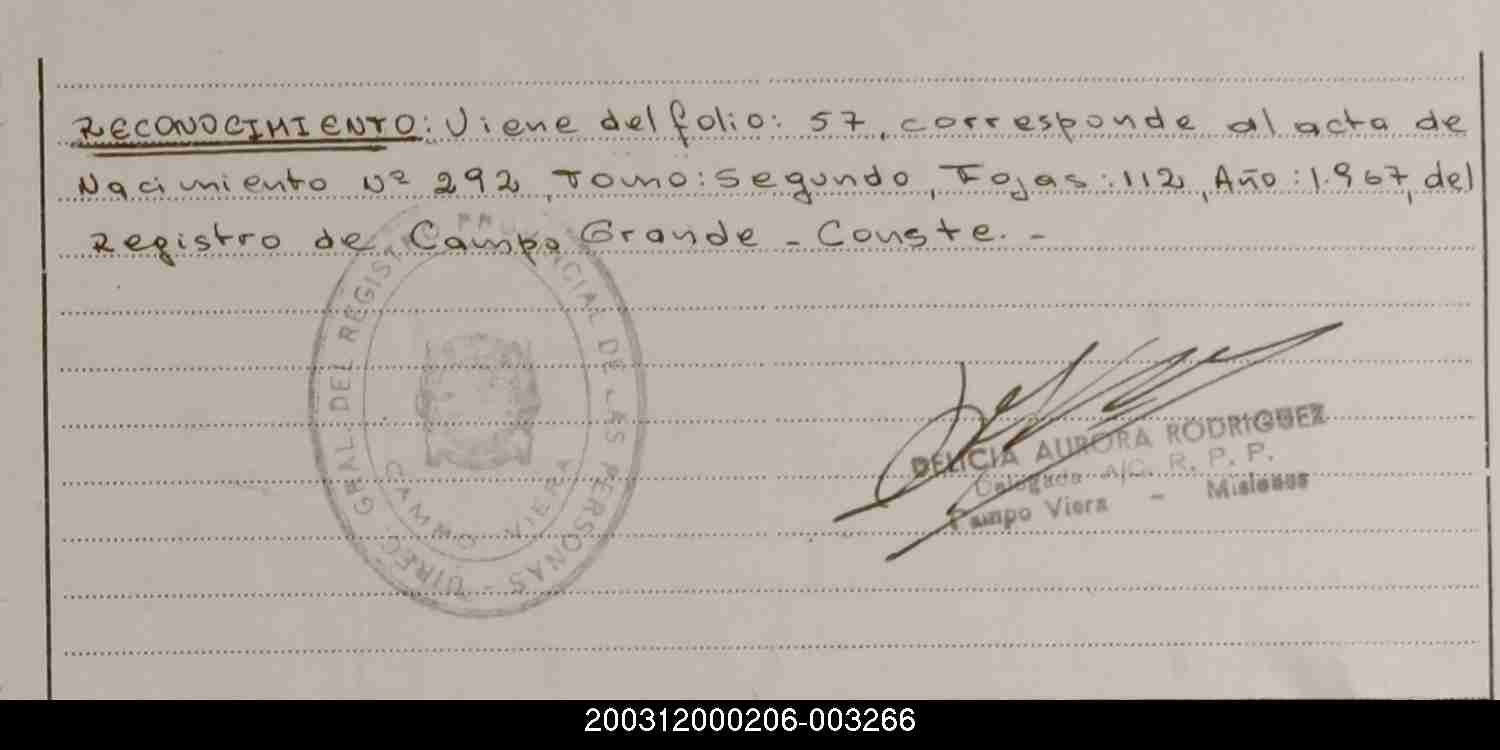 RECONOCIMIENTO: Viene del folio: 57, corresponde al acta de
Nacimiento Nº 292, Tomo: Segundo, Fojas: 112, Año: 1.967, del
Registro de Campo Grande - Conste. -
DIREC. GRAL. DEL REGIST. PROVINCIAL DE LAS PERSONAS -
CAMPO VIERA
DELICIA AURORA RODRIGUEZ
Delegada A/C. R. P. P.
Campo Viera - Misiones
200312000206-003266